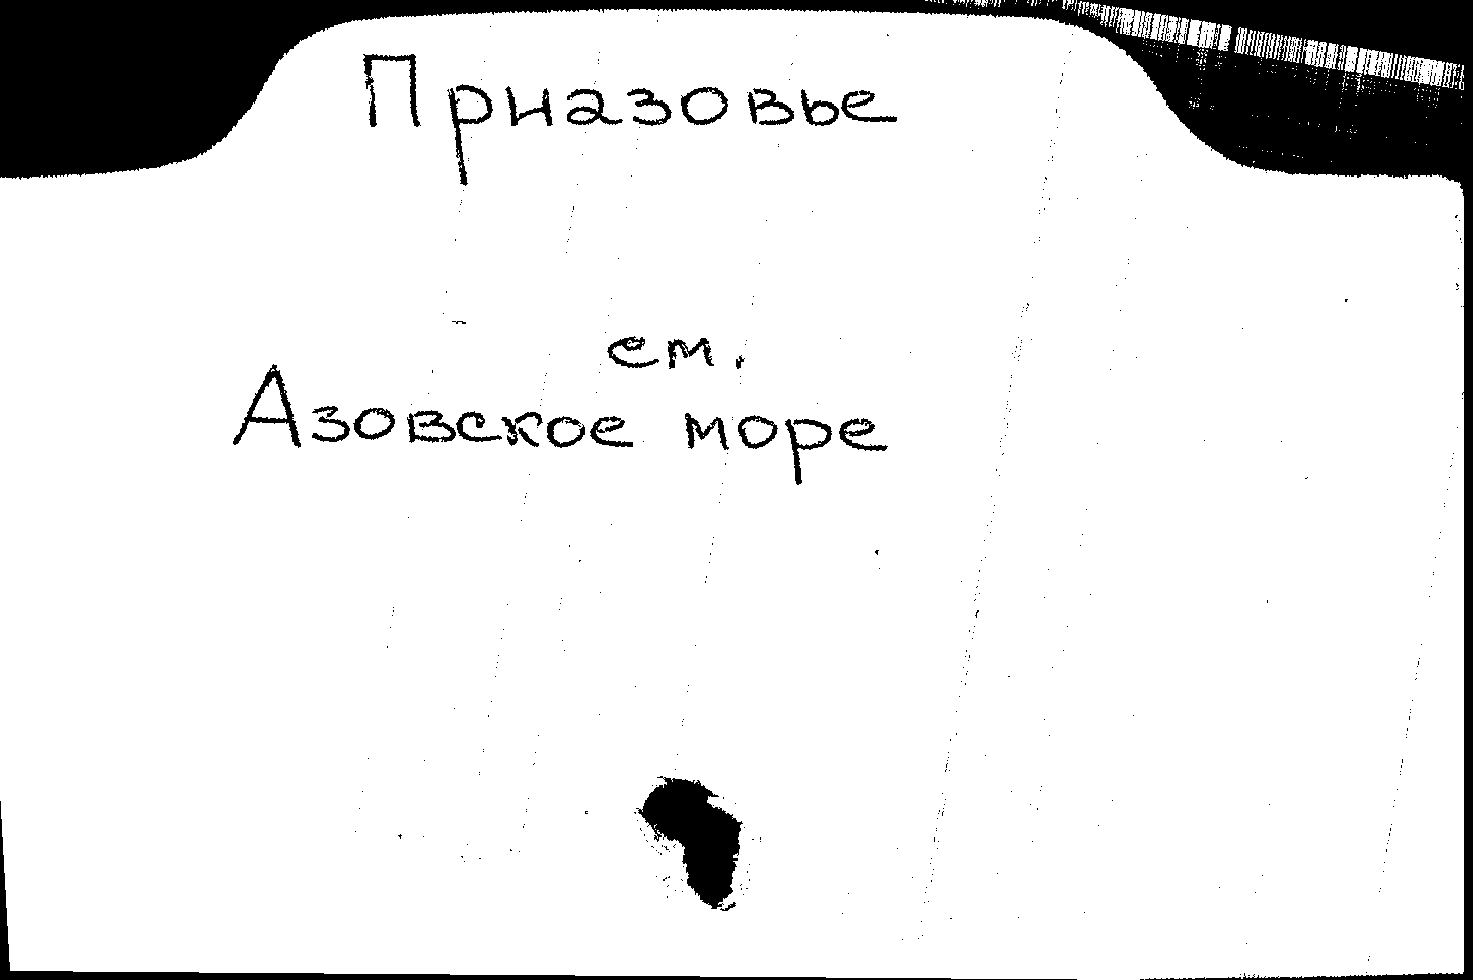 Приазовье
см.
Азовское море